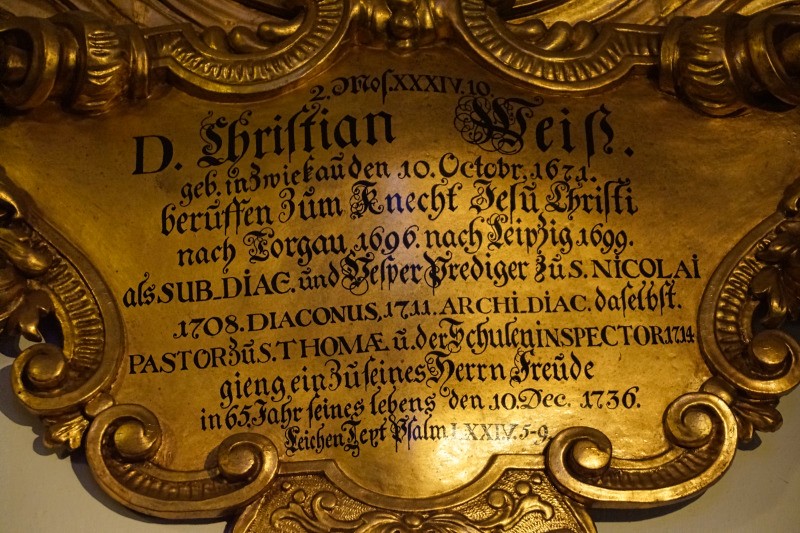 2. Mos. XXXIV. 10.
D. Christian Weiß.
geb. in Zwickau den 10. Octobr. 1671.
beruffen zum Knecht Jesu Christi
nach Torgau 1696. nach Leipzig 1699.
als SUB-DIAC. und Vesper Prediger zu S. NICOLAI
1708. DIACONUS, 1711. ARCHI-DIAC. daselbst.
PASTOR zu S. THOMÆ u. der Schulen INSPECTOR 1714
gieng ein zu seines Herrn Freude
in 65. Jahr seines lebens den 10. Dec. 1736.
Leichen Text Psalm LXXIV. 5-9.